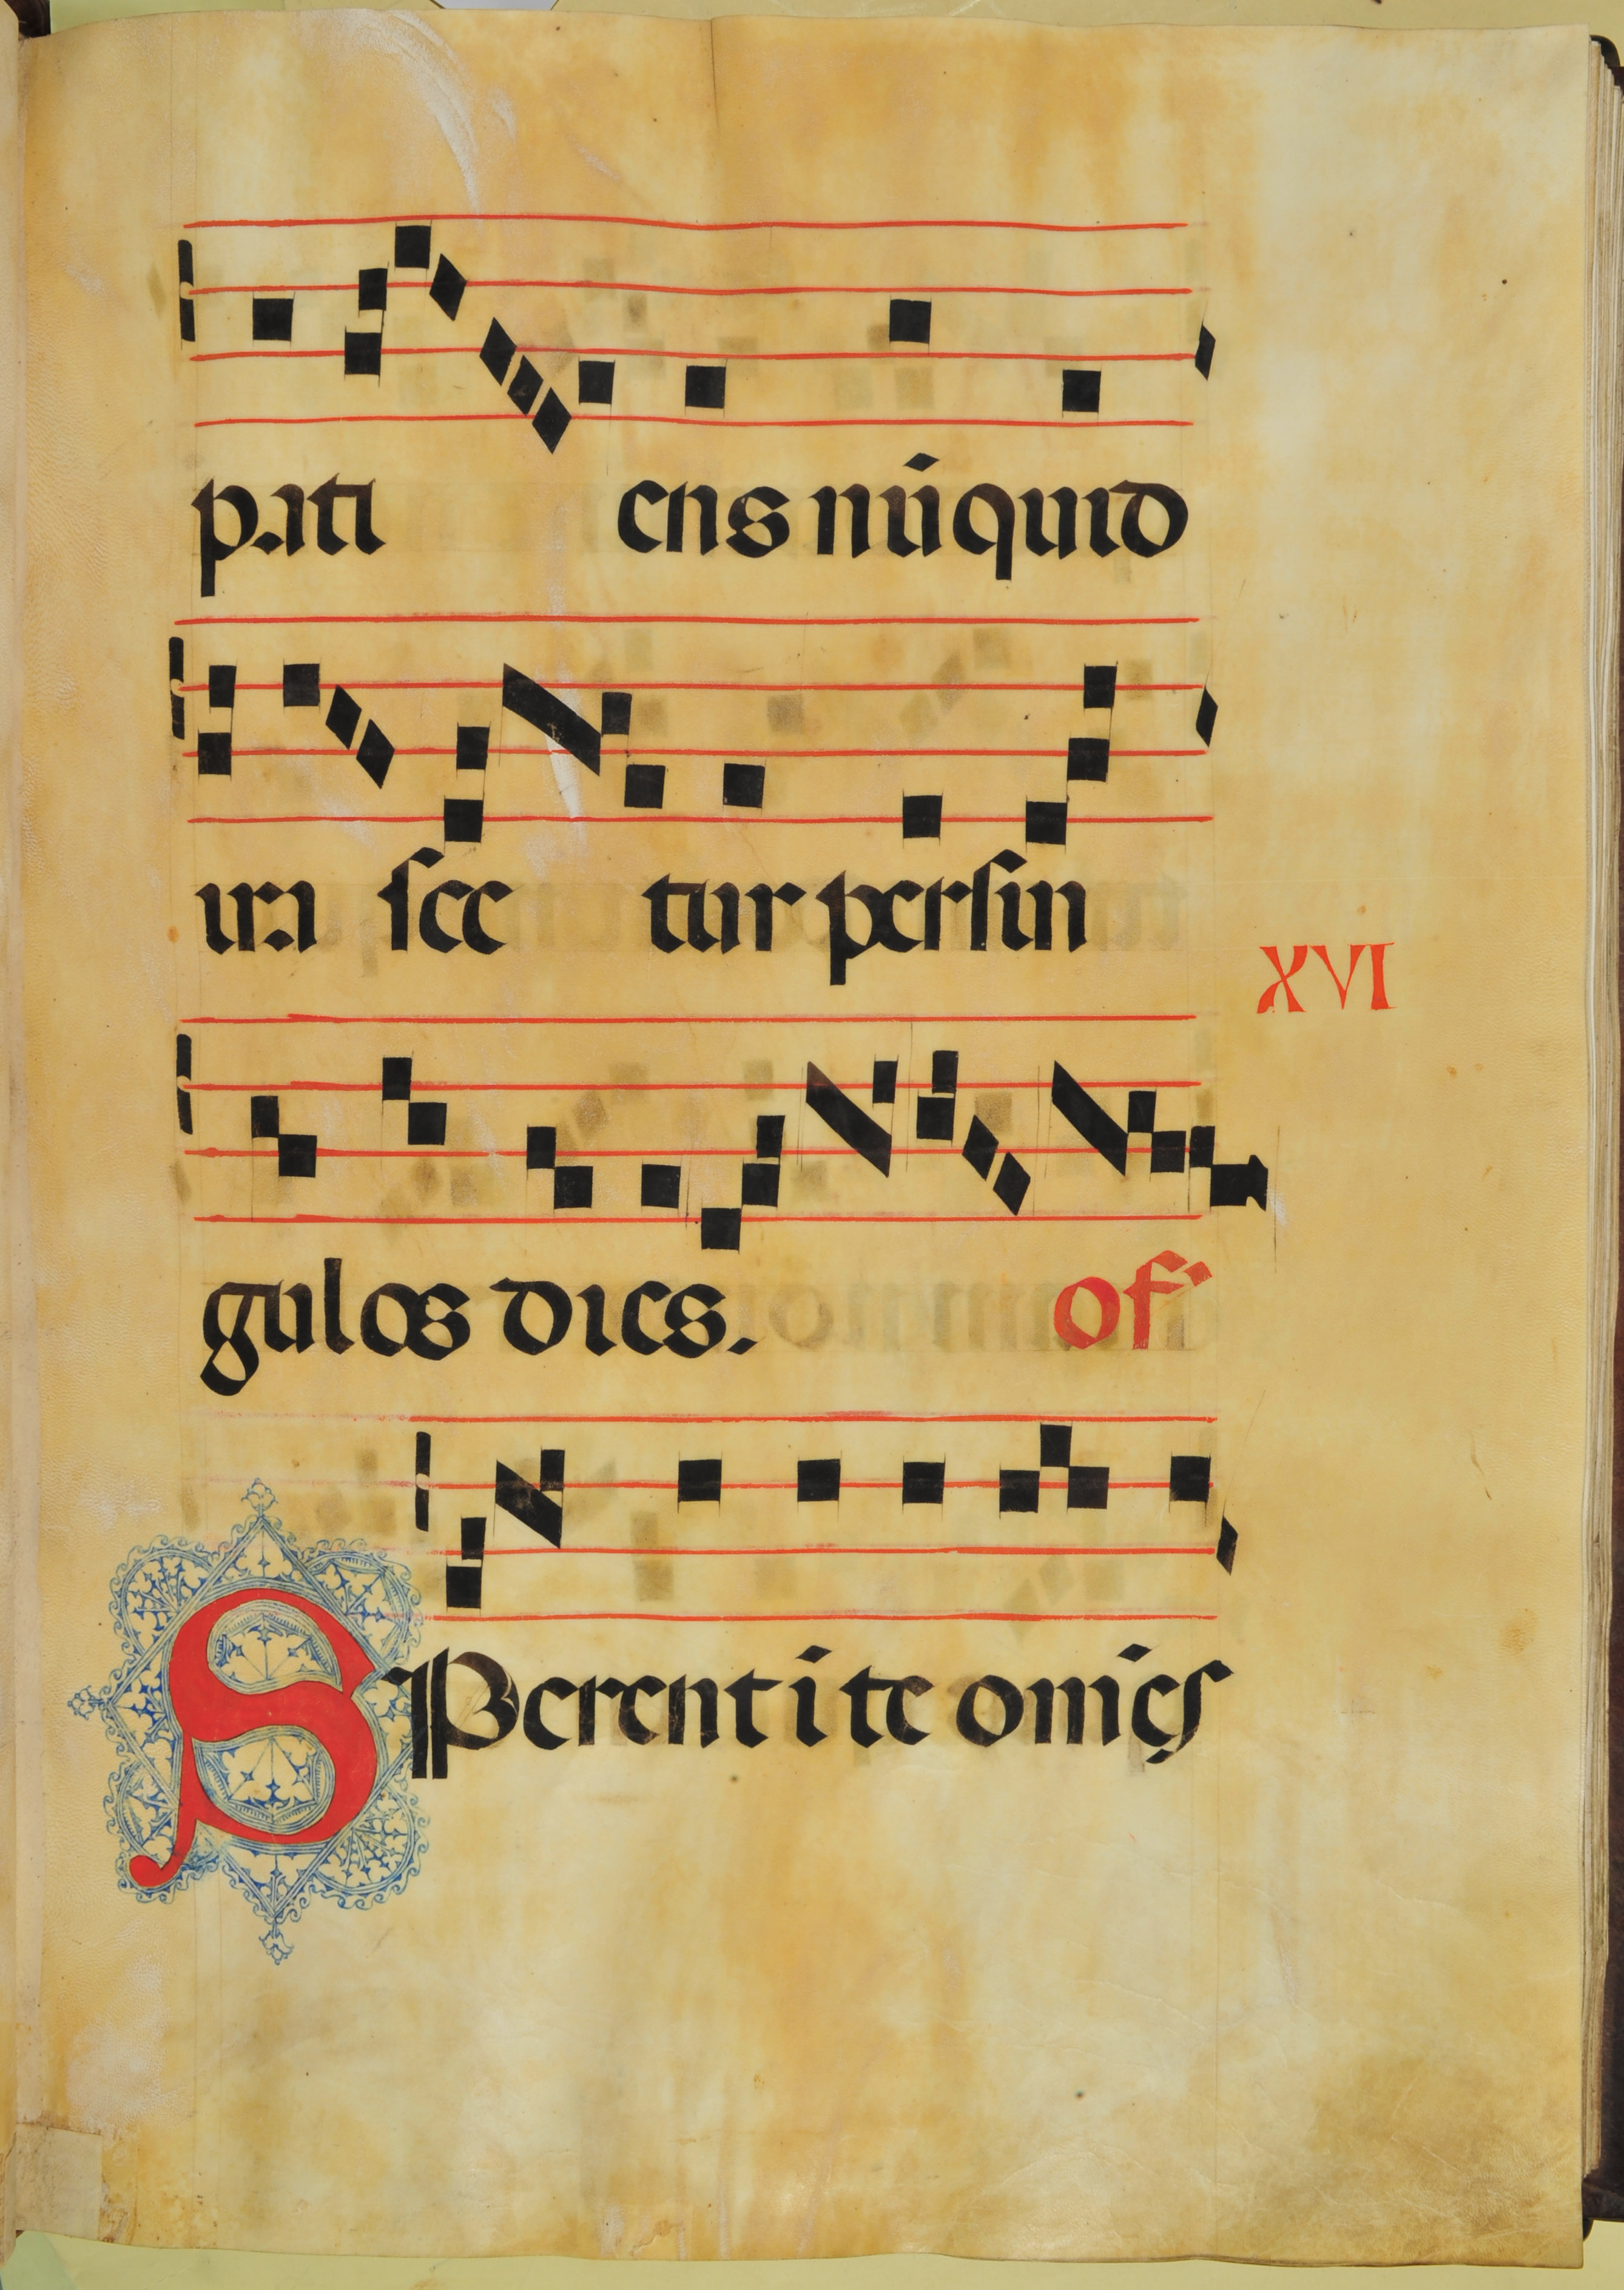 pati ens nūquid
ira sce tur persin
XVI
gulos dies. of
SPerent i te om̄ęs